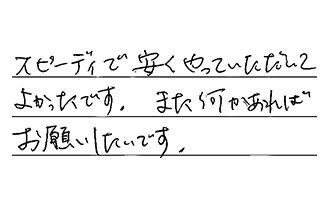 スピーディで安くやっていただいて
よかったです。また何かあれば
お願いしたいです。